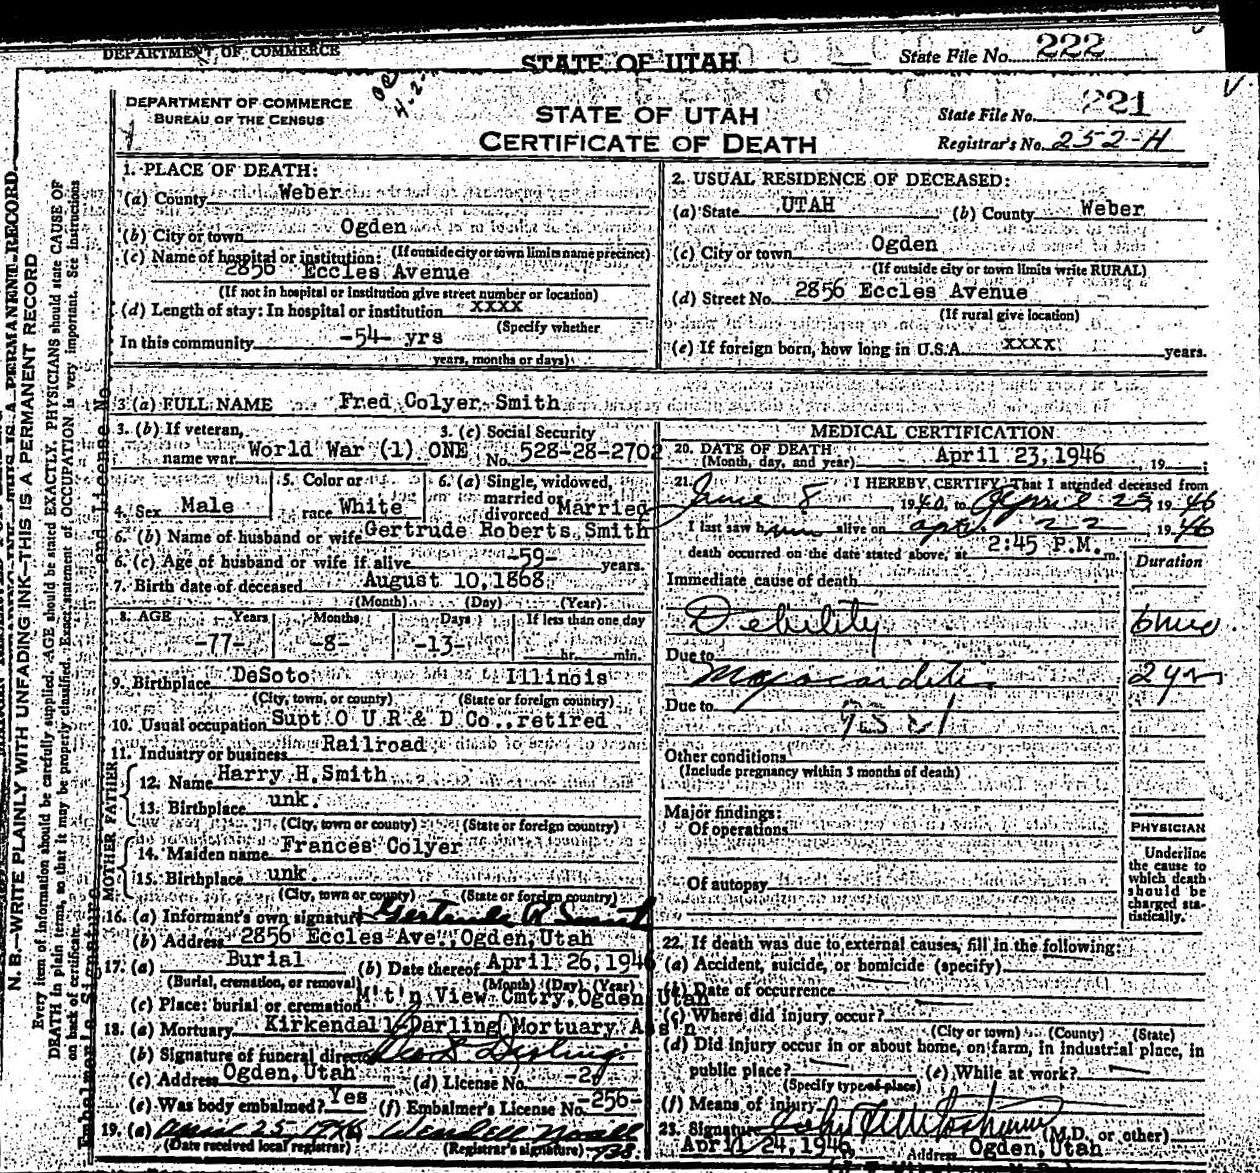 DEPARTMENT OF COMMERCE
STATE OF UTAH
State File No. 222
DEPARTMENT OF COMMERCE
BUREAU OF THE CENSUS
STATE OF UTAH
CERTIFICATE OF DEATH
State File No. 221
Registrar's No. 252-H
N. B.—WRITE PLAINLY WITH UNFADING INK—THIS IS A PERMANENT RECORD
Every item of information should be carefully supplied. AGE should be stated EXACTLY. PHYSICIANS should state CAUSE OF
DEATH in plain terms, so that it may be properly classified. Exact statement of OCCUPATION is very important. See instructions
on back of certificate.
1. PLACE OF DEATH:
(a) County Weber
(b) City or town Ogden
(If outside city or town limits name precinct)
(c) Name of hospital or institution:
2856 Eccles Avenue
(If not in hospital or institution give street number or location)
(d) Length of stay: In hospital or institution XXXX
(Specify whether
In this community -54- yrs
years, months or days)
2. USUAL RESIDENCE OF DECEASED:
(a) State UTAH (b) County Weber
(c) City or town Ogden
(If outside city or town limits write RURAL)
(d) Street No. 2856 Eccles Avenue
(If rural give location)
(e) If foreign born, how long in U.S.A. XXXX years.
3. (a) FULL NAME Fred Colyer Smith
3. (b) If veteran, name war World War (1) ONE
3. (c) Social Security No. 528-28-2702
4. Sex Male
5. Color or race White
6. (a) Single, widowed, married or divorced Married
6. (b) Name of husband or wife Gertrude Roberts Smith
6. (c) Age of husband or wife if alive -59- years.
7. Birth date of deceased August 10, 1868
(Month) (Day) (Year)
8. AGE Years Months Days If less than one day
-77- -8- -13- hr. min.
9. Birthplace DeSoto Illinois
(City, town, or county) (State or foreign country)
10. Usual occupation Supt O U R & D Co., retired
11. Industry or business Railroad
FATHER
12. Name Harry H. Smith
13. Birthplace unk.
(City, town or county) (State or foreign country)
MOTHER
14. Maiden name Frances Colyer
15. Birthplace unk.
(City, town or county) (State or foreign country)
16. (a) Informant's own signature Gertrude R Smith
(b) Address 2856 Eccles Ave., Ogden, Utah
17. (a) Burial (b) Date thereof April 26, 1946
(Burial, cremation, or removal) (Month) (Day) (Year)
(c) Place: burial or cremation M't'n View Cmtry, Ogden Utah
18. (a) Mortuary Kirkendall-Darling Mortuary Ass'n
(b) Signature of funeral director
(c) Address Ogden, Utah (d) License No.
(e) Was body embalmed? Yes (f) Embalmer's License No. -256-
19. (a) April 25 1946 Wendell
(Date received local registrar) (Registrar's signature)
MEDICAL CERTIFICATION
20. DATE OF DEATH April 23, 1946, 19
(Month, day, and year)
21. I HEREBY CERTIFY, That I attended deceased from
June 8 1940, to April 19 46
I last saw him alive on Apr 22 19 46
death occurred on the date stated above, at 2:45 P.M. m.
Duration
Immediate cause of death
Debility 6 mos
Due to
Myocarditis 2 yrs
Due to
Other conditions
(Include pregnancy within 3 months of death)
Major findings:
Of operations
Of autopsy
PHYSICIAN
Underline
the cause to
which death
should be
charged sta-
tistically.
22. If death was due to external causes, fill in the following:
(a) Accident, suicide, or homicide (specify)
(b) Date of occurrence
(c) Where did injury occur?
(City or town) (County) (State)
(d) Did injury occur in or about home, on farm, in industrial place, in
public place? (e) While at work?
(Specify type of place)
(f) Means of injury
23. Signature (M.D. or other)
April 24, 1946 Address Ogden, Utah